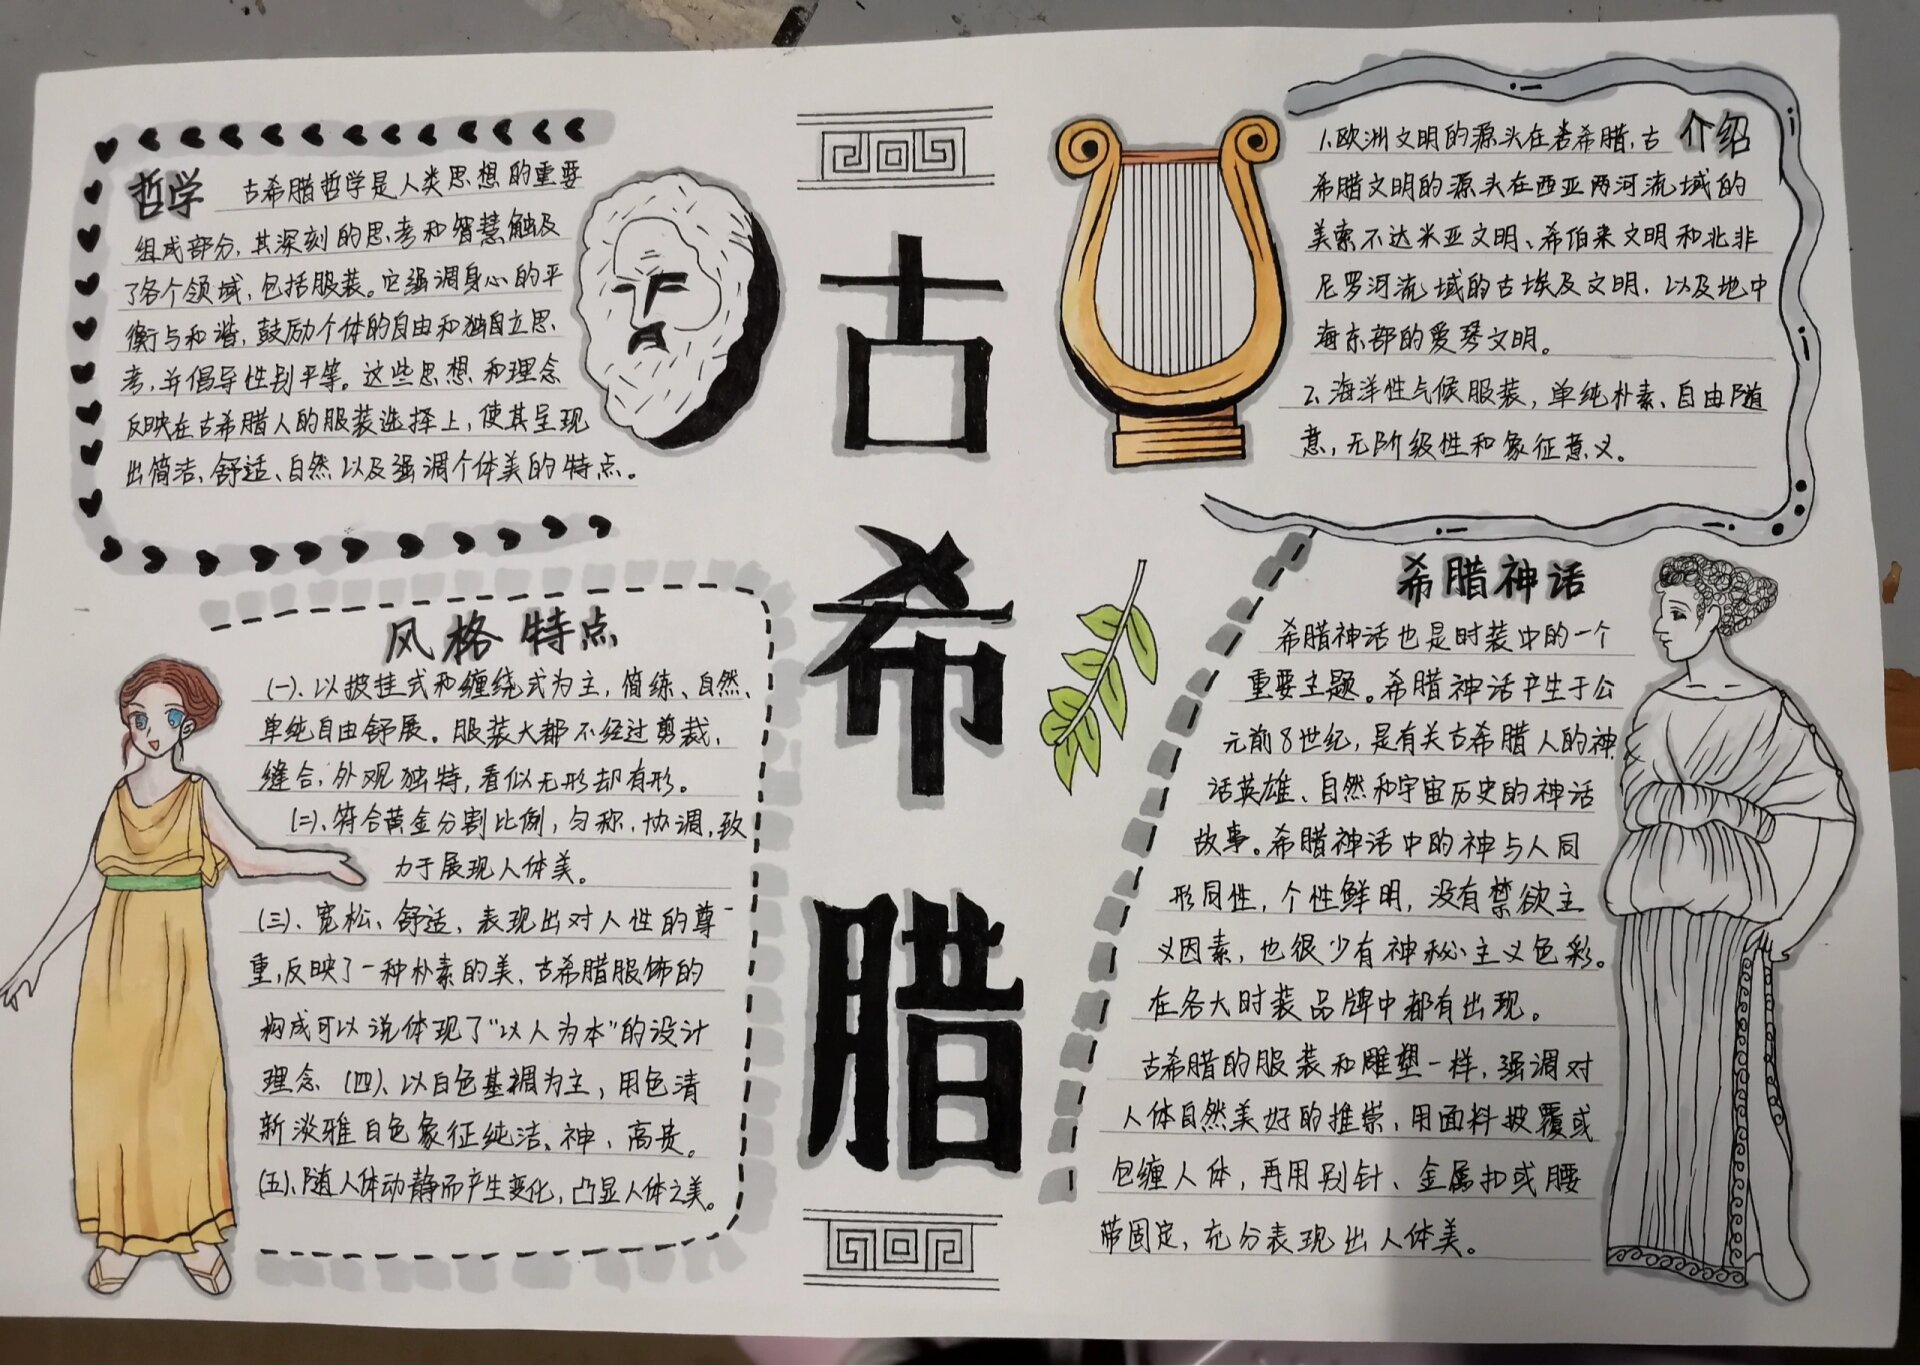 哲学
古希腊哲学是人类思想的重要
组成部分,其深刻的思考和智慧触及
了各个领域,包括服装。它强调身心的平
衡与和谐,鼓励个体的自由和独自立思
考,并倡导性别平等。这些思想和理念
反映在古希腊人的服装选择上,使其呈现
出简洁、舒适、自然以及强调个体美的特点。
风格特点
(一)、以披挂式和缠绕式为主,简练、自然、
单纯自由舒展。服装大都不经过剪裁,
缝合,外观独特,看似无形却有形。
(二)、符合黄金分割比例,匀称,协调,致
力于展现人体美。
(三)、宽松、舒适、表现出对人性的尊
重,反映了一种朴素的美,古希腊服饰的
构成可以说体现了“以人为本”的设计
理念 (四)、以白色基裯为主,用色清
新淡雅白色象征纯洁、神、高贵。
(五)、随人体动静而产生变化,凸显人体之美。
古希腊
介绍
1、欧洲文明的源头在希腊,古
希腊文明的源头在西亚两河流域的
美索不达米亚文明、希伯来文明和北非
尼罗河流域的古埃及文明,以及地中
海东部的爱琴文明。
2、海洋性气候服装,单纯朴素、自由随
意,无阶级性和象征意义。
希腊神话
希腊神话也是时装中的一个
重要主题。希腊神话产生于公
元前8世纪,是有关古希腊人的神
话英雄、自然和宇宙历史的神话
故事。希腊神话中的神与人同
形同性,个性鲜明,没有禁欲主
义因素,也很少有神秘主义色彩。
在各大时装品牌中都有出现。
古希腊的服装和雕塑一样,强调对
人体自然美好的推崇,用面料披覆或
包缠人体,再用别针、金属扣或腰
带固定,充分表现出人体美。